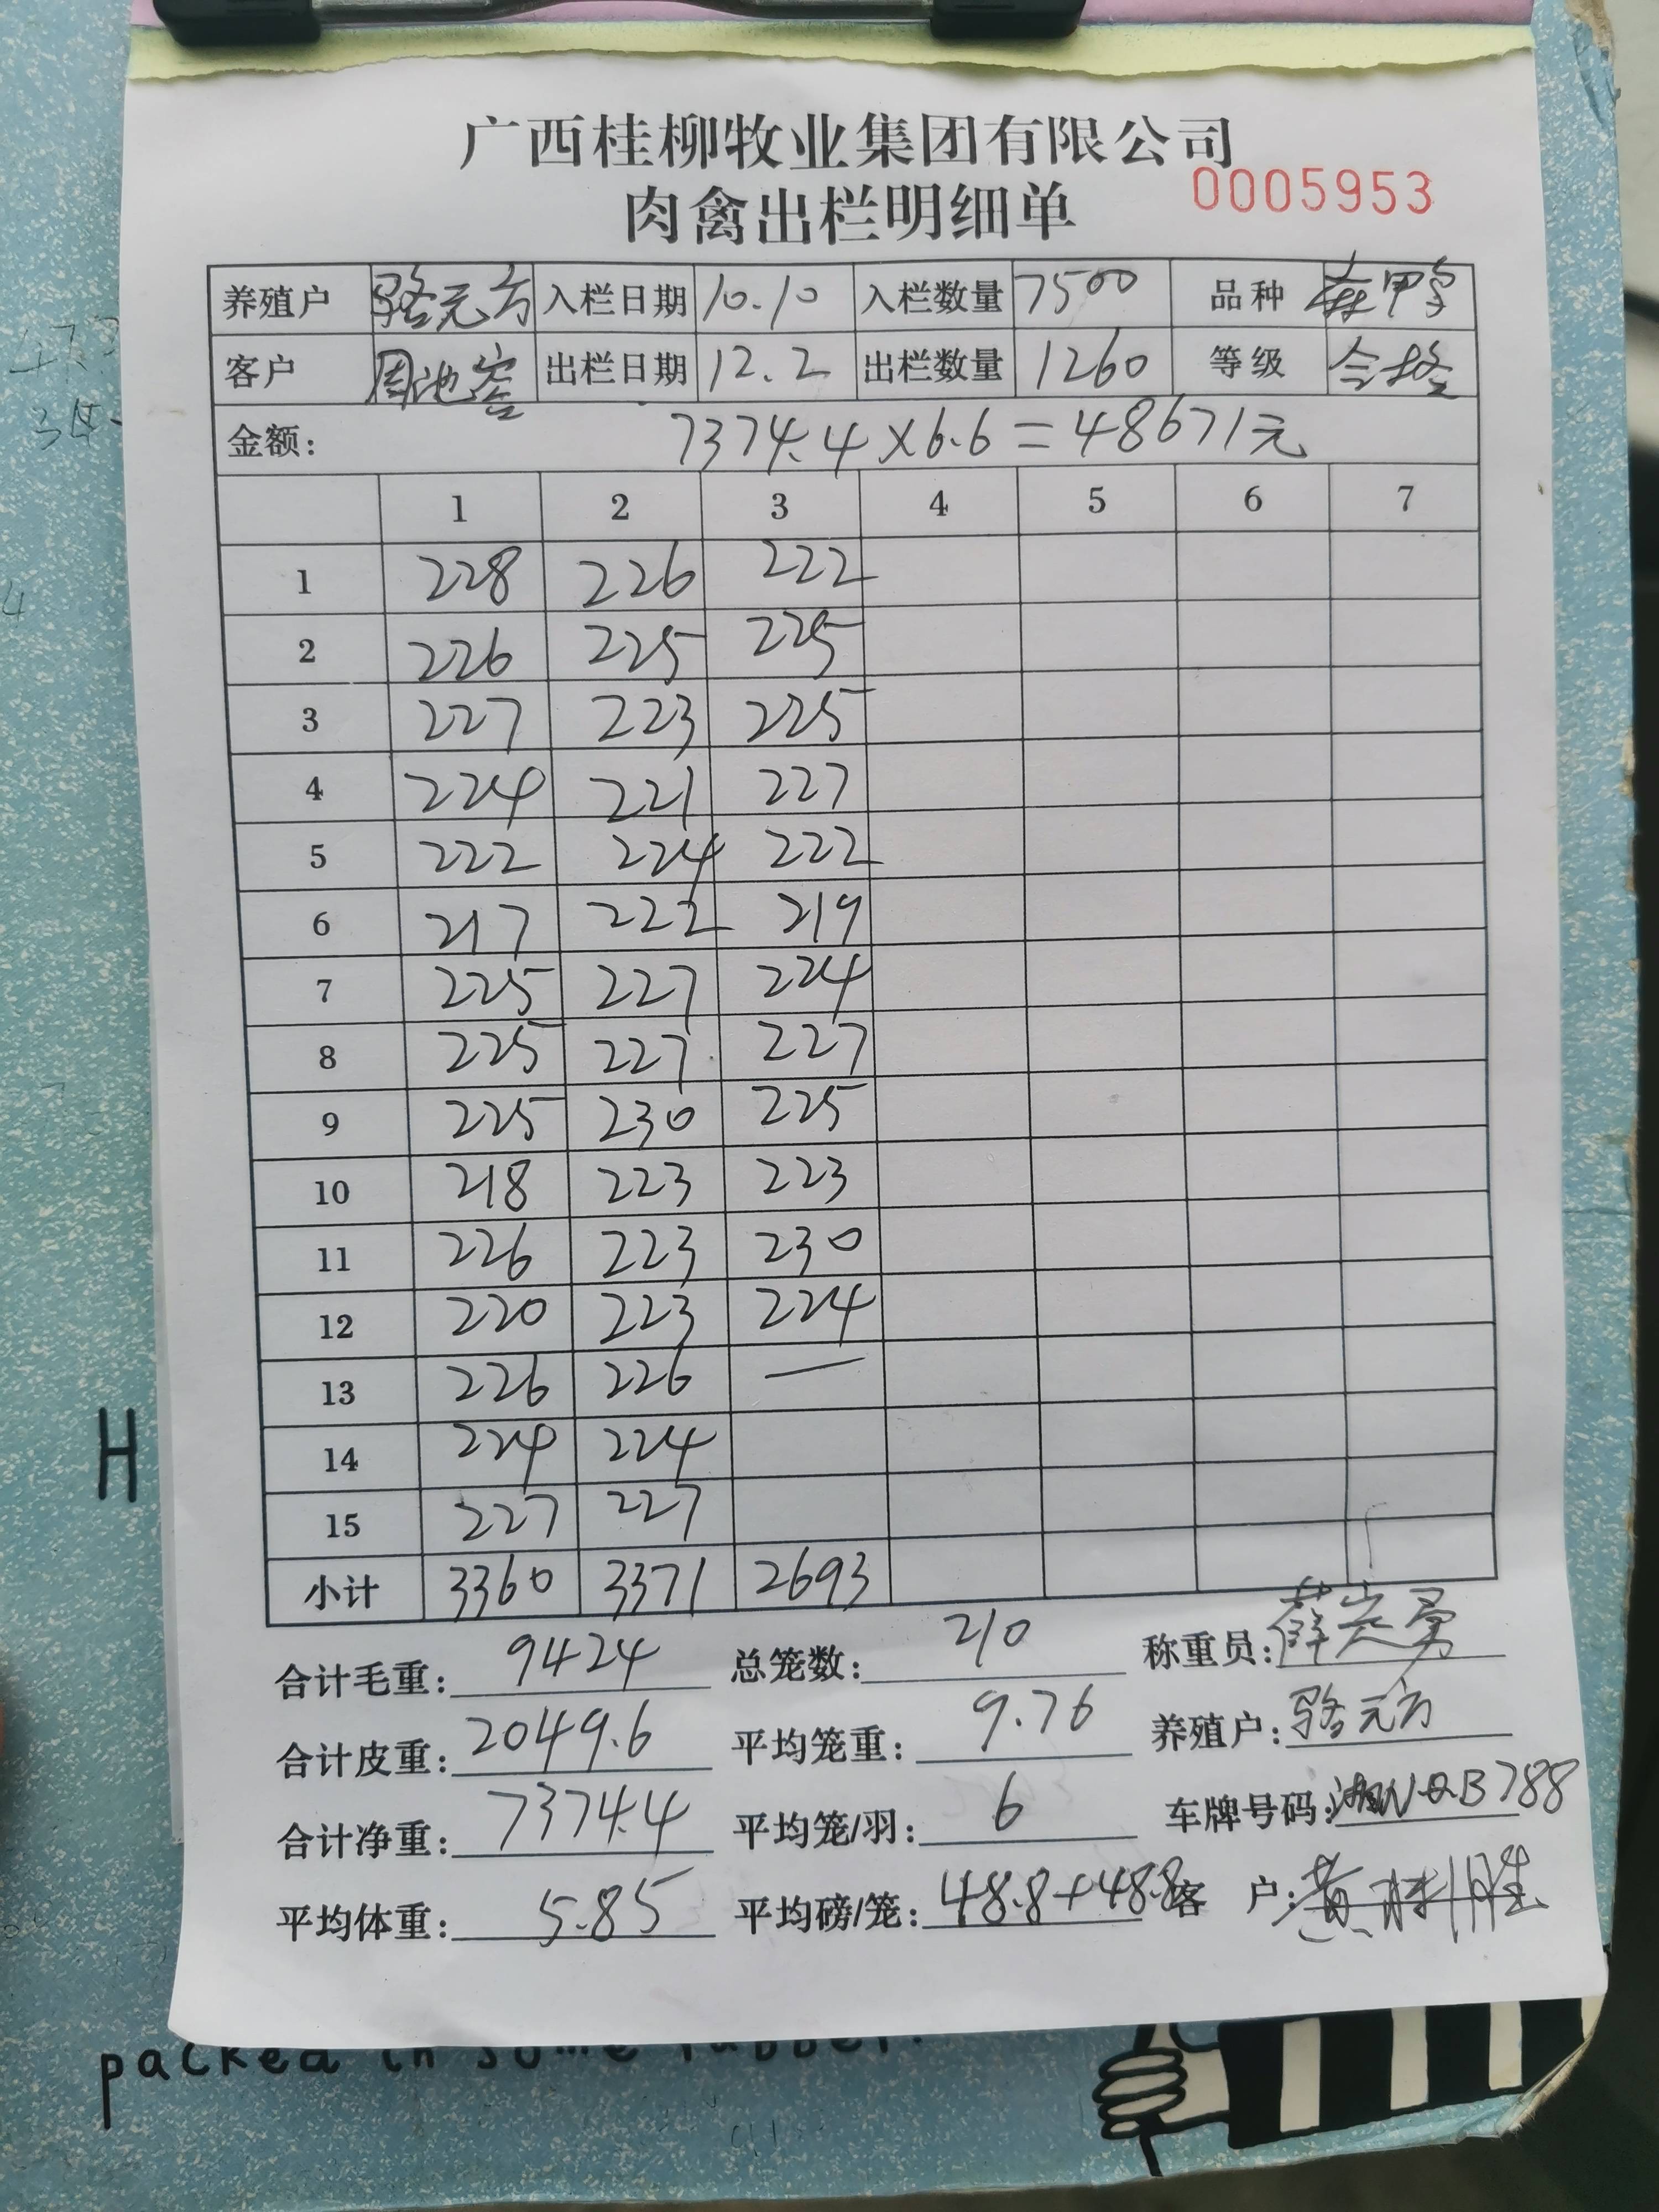 广西桂柳牧业集团有限公司
肉禽出栏明细单 0005953
养殖户 骆元方 入栏日期 10.10 入栏数量 7500 品种 麻鸭
客户 周池 出栏日期 12.2 出栏数量 1260 等级 合格
金额: 7374.4×6.6=48671元
1 2 3 4 5 6 7
1 228 226 222
2 226 225 225
3 227 223 225
4 224 221 227
5 222 224 222
6 217 222 219
7 225 227 224
8 225 227 227
9 225 230 225
10 218 223 223
11 226 223 230
12 220 223 224
13 226 226 —
14 224 224
15 227 227
小计 3360 3371 2693
合计毛重: 9424 总笼数: 210 称重员: 薛
合计皮重: 2049.6 平均笼重: 9.76 养殖户: 骆元方
合计净重: 7374.4 平均笼/羽: 6 车牌号码: B788
平均体重: 5.85 平均磅/笼: 48.8+48.8 客 户: 黄
H
packed in some rubber.